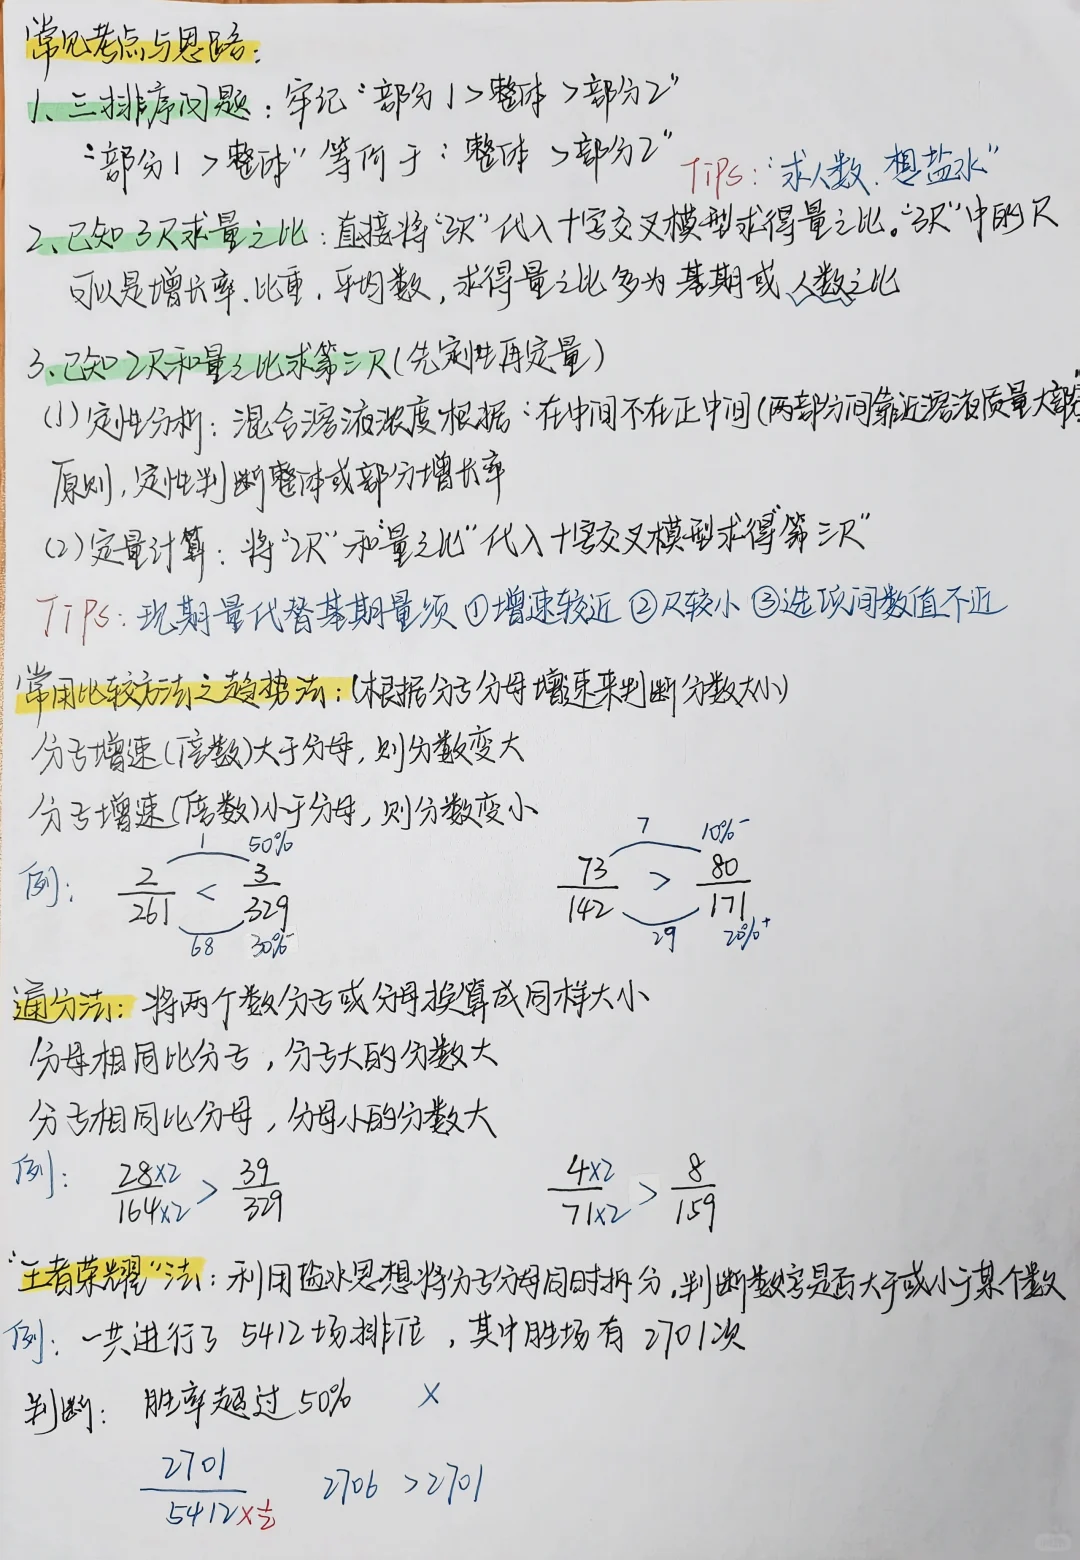 常见考点与思路:
1、三排序问题:牢记“部分1>整体>部分2”
“部分1>整体”等价于:整体>部分2”
Tips:“求人数、想盐水”
2、已知3R求量之比:直接将“3R”代入十字交叉模型求得量之比。“3R”中的R
可以是增长率、比重、平均数,求得量之比多为基期或人数之比
3、已知2R和量之比求第三R(先定性再定量)
(1)定性分析:混合溶液浓度根据:在中间不在正中间(两部分间靠近溶液质量大部分”
原则,定性判断整体或部分增长率
(2)定量计算:将“2R”和“量之比”代入十字交叉模型求得“第三R”
Tips:现期量代替基期量须①增速较近②R较小③选项间数值不近
常用比较方法之趋势法:(根据分子分母增速来判断分数大小)
分子增速(倍数)大于分母,则分数变大
分子增速(倍数)小于分母,则分数变小
1 50% 7 10%-
例: 2/261 < 3/329 73/142 > 80/171
68 30%- 29 20%+
通分法:将两个数分子或分母换算成同样大小
分母相同比分子,分子大的分数大
分子相同比分母,分母小的分数大
例: 28×2/164×2 > 39/329 4×2/71×2 > 8/159
“王者荣耀”法:利用盐水思想将分子分母同时拆分,判断数字是否大于或小于某个数
例:一共进行了5412场排位,其中胜场有2701次
判断:胜率超过50% ×
2701/5412×1/2 2706>2701